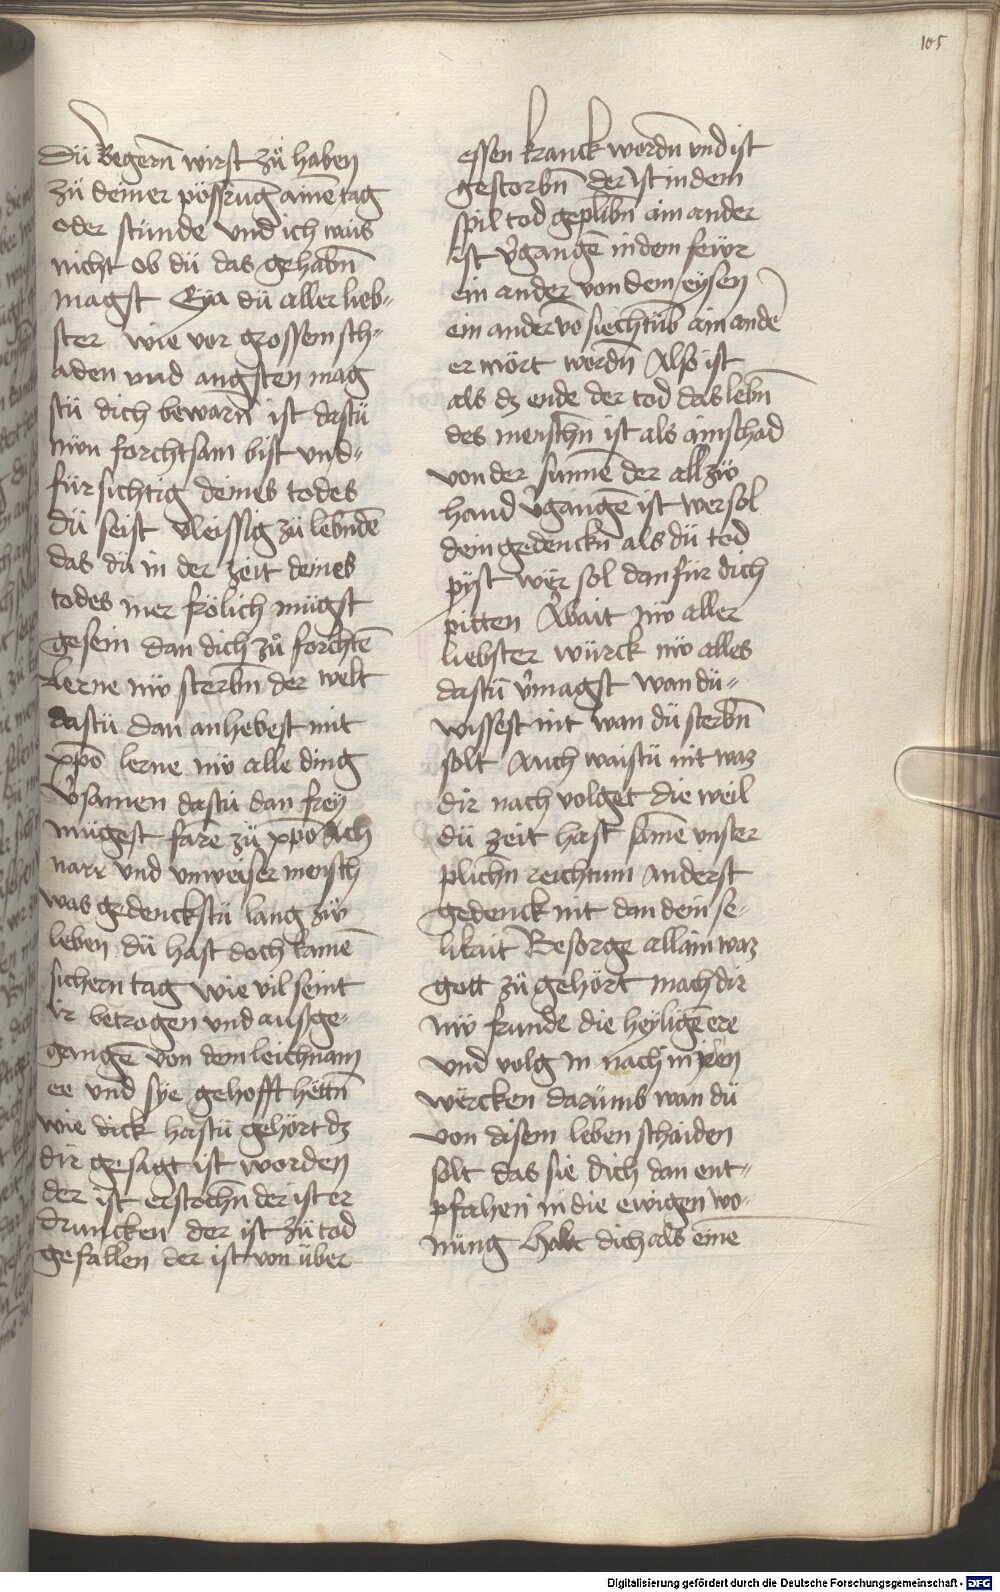 105
dü Begern̄ wirst zü haben
zü deiner pössrūg ainē tag
oder stunde vnd ich wais
nicht ob dü das gehabn̄
magst Eya dü aller lieb-
ster wie vor grossem sch-
aden vnd angsten mag
stü dich bewarn̄ ist dastü
nẅn forchtsam bist vnd-
fürsichtig deines todes
dü seist vleissig zü lebndē
das dü in der zeit deines
todes mer frölich mügst
gesein dan dich zů forchtē
lerne nẅ sterbn̄ der welt
dastü dan anhebest mit
xpō lerne nẅ alle ding
v̉samen dastü dan frey
mügest farē zü xpō Ach
narr vnd vnweiser mensch
was gedenckstü lang zẅ
leben dü hast doch kainē
sichern tag wie vil seint
ir betrogen vnd aussge-
gangē von dem leichnam
ee vnd sye gehofft hëttn̄
wie dick hastü gehört dz
dir gesagt ist worden
der ist erstochn̄ der ist er
druncken der ist zü tod
gefallen der ist von über
essen kranck wordn̄ vnd ist
gestorbn̄ der ist in dem
spil tod geplibn̄ ain ander
ist v̉gangē in dem fewr
ein ander von dem eysen
ein ander vō siechtūb ain ande
er mört wordn̄ Also ist
als dz ende der tod das lebn̄
des menschn̄ ist als ain schad
von der sunnē der allzẅ
hand v̉gangē ist wer sol
dein gedenckn̄ als dü tod
pyst wër sol dan für dich
pitten Arbait nẅ aller
liebster würck nẅ alles
dastü v̉magst wan dü-
wissest nit wan dü sterbn̄
solt Auch waistü nit waz
dir nach volget die weil
dü zeit hast samē vnster
plichn̄ reichtum Anderst
gedenck nit dan dein se-
likait Besorge allain waz
gott zü gehört mach dir
nẅ frunde die heyligē ere
vnd volg in nach in iren
wërcken darümb wan dü
von disem leben schaiden
solt das sie dich dan ent-
pfahen in die ewigen wo-
nüng Halt dich als einē
Digitalisierung gefördert durch die Deutsche Forschungsgemeinschaft - DFG